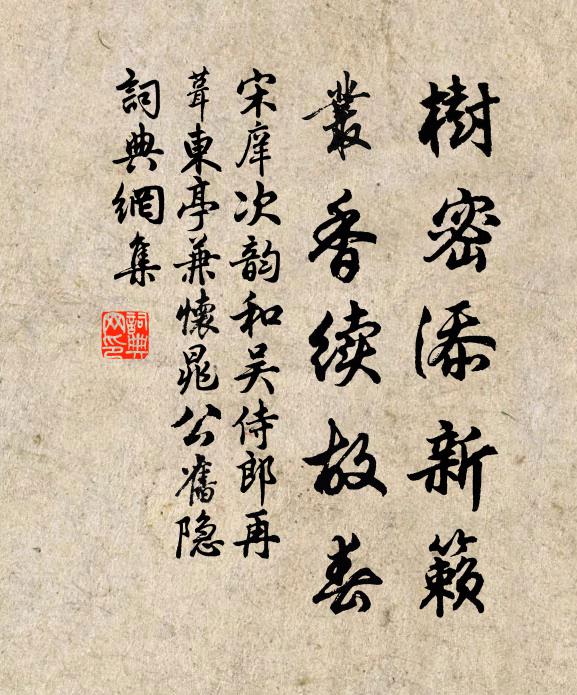 樹密添新籟
叢香續故春
宋庠次韵和吴侍郎再
葺東亭兼懷晁公舊隐
詞典網集
詞典
网印